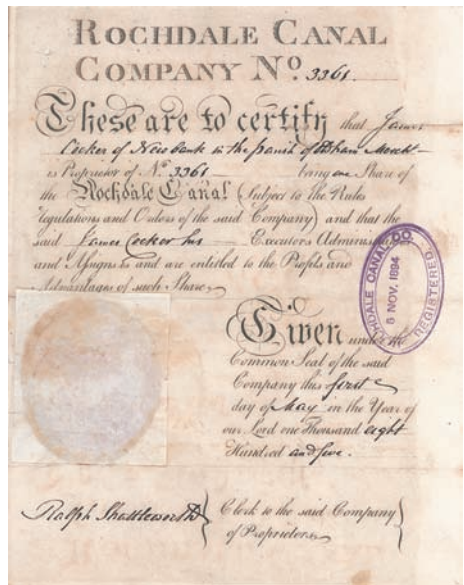 ROCHDALE CANAL
COMPANY No. 3361.
These are to certify that James
Cocker of New bank in the parish of
is Proprietor of No. 3361 being one Share of
the Rochdale Canal (Subject to the Rules
Regulations and Orders of the said Company) and that the
said James Cocker his Executors Administ
and Assigns is and are entitled to the Profits and
Advantages of such Share
Given under the
Common Seal of the said
Company this first
day of May in the Year of
our Lord one Thousand eight
Hundred and five.
Ralph Shuttleworth
Clerk to the said Company
of Proprietors
ROCHDALE CANAL CO.
5 NOV. 1894
REGISTERED